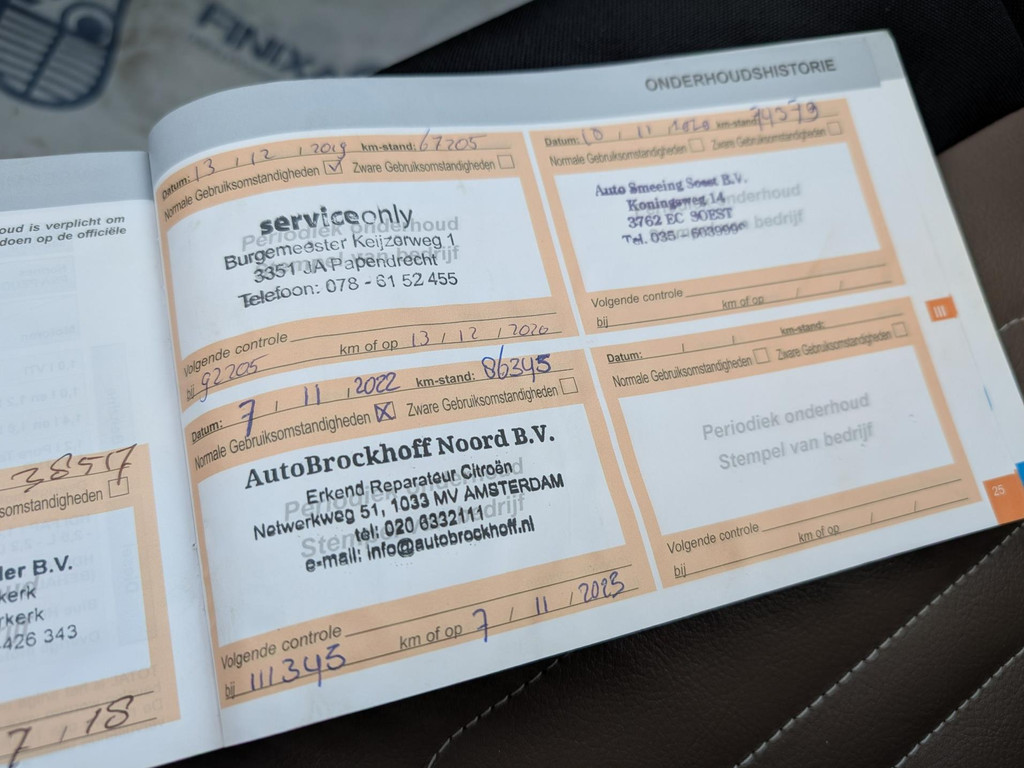 FINIX
ONDERHOUDSHISTORIE
oud is verplicht om
doen op de officiële
3857
omstandigheden
ler B.V.
kerk
rkerk
426 343
7 / 18
Datum: 13 / 12 / 2019 km-stand: 67205
Normale Gebruiksomstandigheden Zware Gebruiksomstandigheden
Periodiek onderhoud
Stempel van bedrijf
serviceonly
Burgemeester Keijzerweg 1
3351 JA Papendrecht
Telefoon: 078 - 61 52 455
Volgende controle
bij 92205 km of op 13 / 12 / 2020
Datum: 10 / 11 / 2020 km-stand: 74579
Normale Gebruiksomstandigheden Zware Gebruiksomstandigheden
Periodiek onderhoud
Stempel van bedrijf
Auto Smeeing Soest B.V.
Koningsweg 14
3762 EC SOEST
Tel. 035 -
Volgende controle
bij km of op / /
Datum: 7 / 11 / 2022 km-stand: 86345
Normale Gebruiksomstandigheden X Zware Gebruiksomstandigheden
Periodiek onderhoud
Stempel van bedrijf
AutoBrockhoff Noord B.V.
Erkend Reparateur Citroën
Netwerkweg 51, 1033 MV AMSTERDAM
tel: 020 6332111
e-mail: info@autobrockhoff.nl
Volgende controle
bij 111345 km of op 7 / 11 / 2023
Datum: / / km-stand:
Normale Gebruiksomstandigheden Zware Gebruiksomstandigheden
Periodiek onderhoud
Stempel van bedrijf
Volgende controle
bij km of op / /
III
25